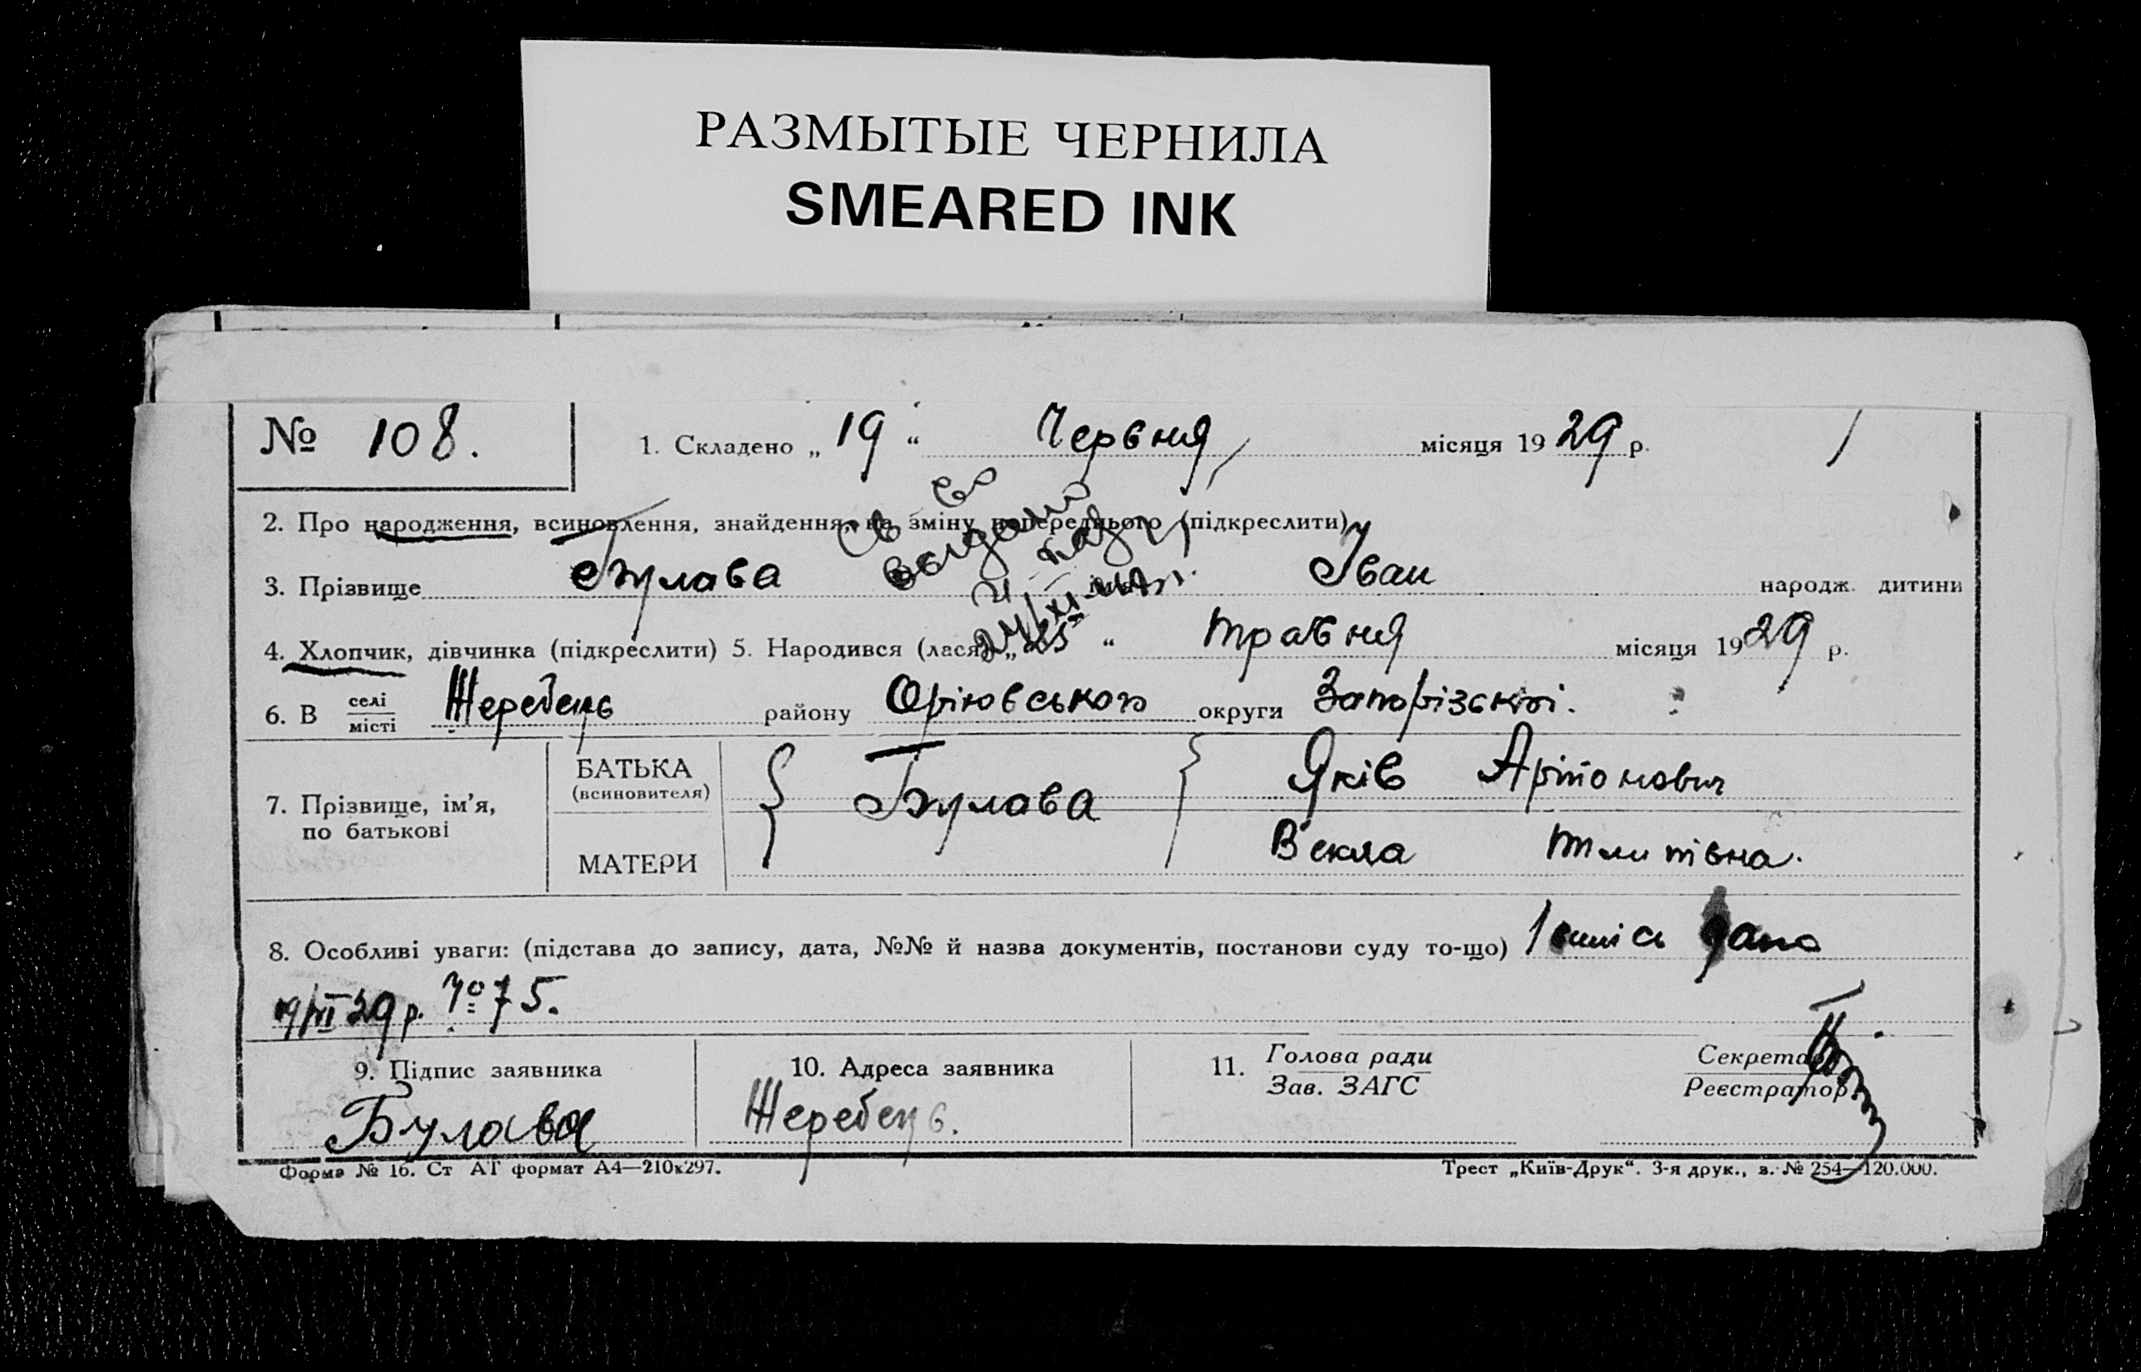 РАЗМЫТЫЕ ЧЕРНИЛА
SMEARED INK
№ 108.
1. Складено „ 19 “ Червня місяця 19 29 р.
2. Про народження, всиновлення, знайдення, на зміну попереднього (підкреслити)
3. Прізвище Булава Іван народж. дитини
4. Хлопчик, дівчинка (підкреслити) 5. Народився (лася) „ 25 “ травня місяця 19 29 р.
6. В селі місті Жеребець району Оріховського округи Запорізької.
7. Прізвище, ім’я, по батькові
БАТЬКА (всиновителя) Булава Яків
МАТЕРИ Векла
8. Особливі уваги: (підстава до запису, дата, №№ й назва документів, постанови суду то-що) дано
19/VI 29 р. № 75.
9. Підпис заявника
Булава
10. Адреса заявника
Жеребець.
11. Голова ради
Зав. ЗАГС
Секретар
Реєстратор
Форма № 16. Ст АТ формат А4—210х297.
Трест „Київ-Друк“. 3-я друк., з. № 254—120.000.